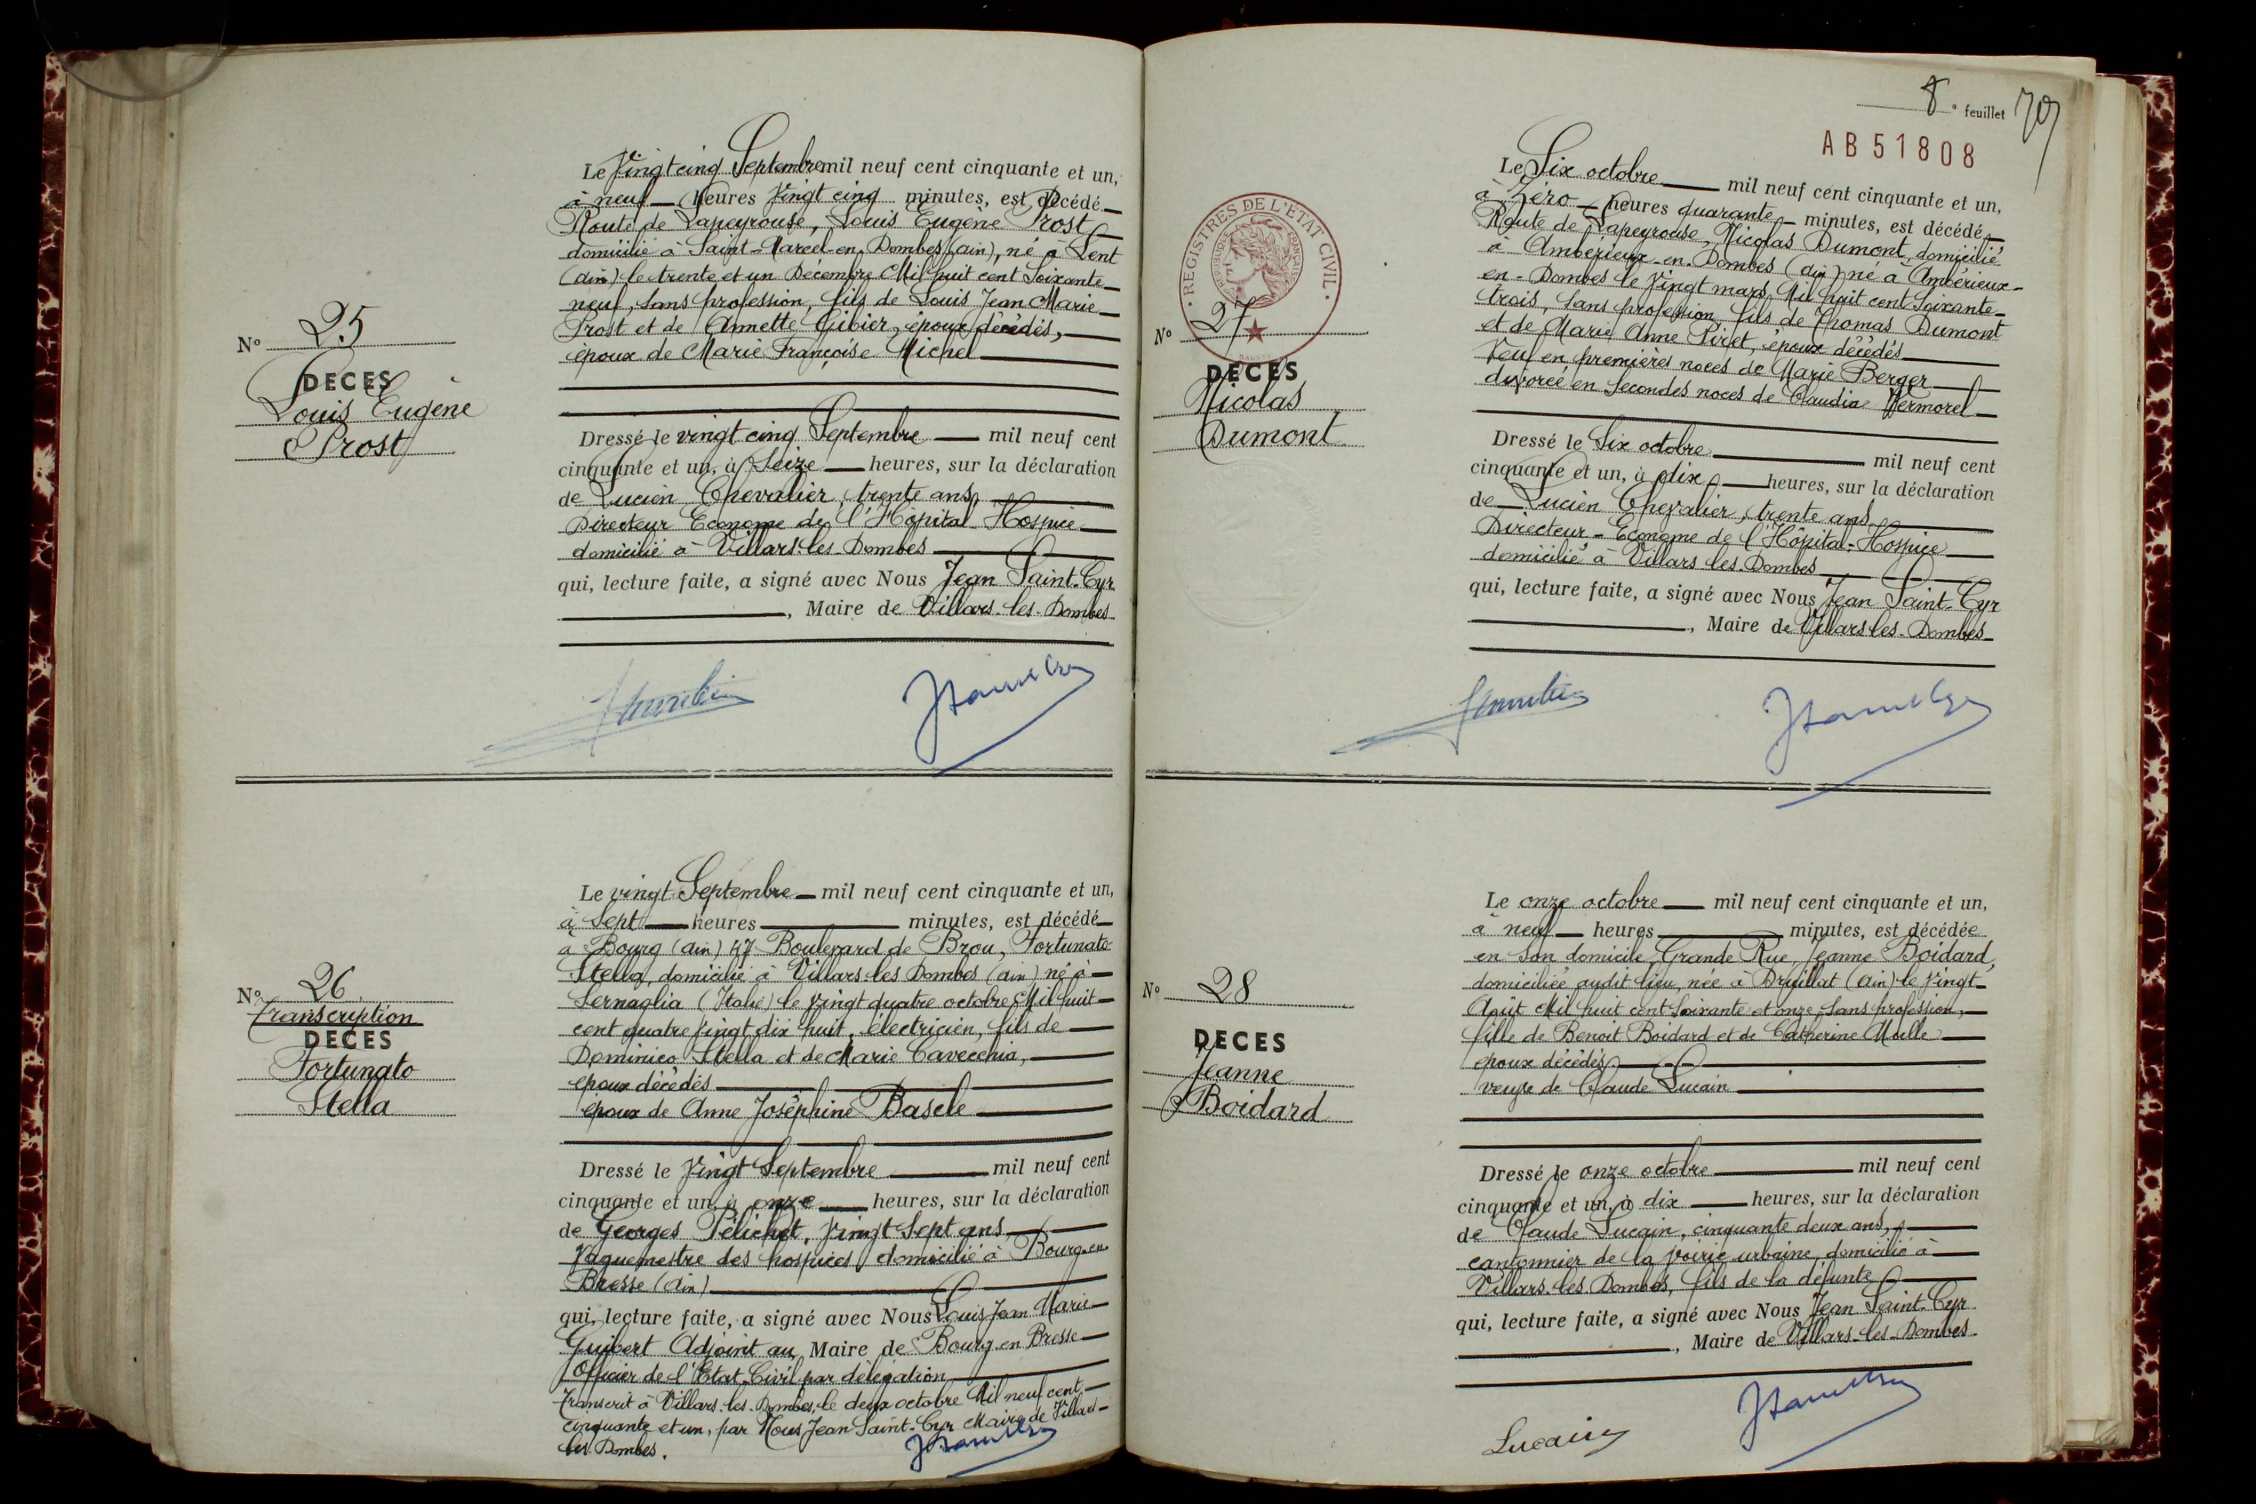 N° 25
DECES
Louis Eugène
Prost
Le vingt cinq Septembre mil neuf cent cinquante et un,
à neuf heures vingt cinq minutes, est décédé
Route de Lapeyrouse, Louis Eugène Prost
domicilié à Saint-Marcel-en-Dombes (ain), né à Lent
(ain) le trente et un Décembre Mil huit cent Soixante
neuf, Sans profession, fils de Louis Jean Marie
Prost et de Annette Gibier, époux décédés,
époux de Marie Françoise Michel
Dressé le vingt cinq Septembre mil neuf cent
cinquante et un, à Seize heures, sur la déclaration
de Lucien Chevalier, trente ans
Directeur Econome de l'Hôpital Hospice
domicilié à Villars-les-Dombes
qui, lecture faite, a signé avec Nous Jean Saint-Cyr
, Maire de Villars-les-Dombes
N° 26
Transcription
DECES
Fortunato
Stella
Le vingt Septembre mil neuf cent cinquante et un,
à Sept heures minutes, est décédé
à Bourg (ain) 47 Boulevard de Brou, Fortunato
Stella, domicilié à Villars-les-Dombes (ain) né à
Sernaglia (Italie) le vingt quatre octobre Mil huit
cent quatre vingt dix huit, électricien, fils de
Dominico Stella et de Marie Cavecchia,
époux décédés
époux de Anne Joséphine Basele
Dressé le vingt Septembre mil neuf cent
cinquante et un, à onze heures, sur la déclaration
de Georges Pélichet, vingt Sept ans
vaguemestre des hospices domicilié à Bourg-en
Bresse (ain)
qui, lecture faite, a signé avec Nous Louis Jean Marie
Guibert Adjoint au Maire de Bourg-en-Bresse
Officier de l'Etat-Civil par délégation
Transcrit à Villars-les-Dombes, le deux octobre Mil neuf cent
cinquante et un, par Nous Jean Saint-Cyr Maire de Villars-
les-Dombes.
8° feuillet 70
AB51808
REGISTRES DE L'ETAT CIVIL
REPUBLIQUE FRANÇAISE
N° 27
DECES
Nicolas
Dumont
Le Six octobre mil neuf cent cinquante et un,
à Zéro heures quarante minutes, est décédé
Route de Lapeyrouse, Nicolas Dumont, domicilié
à Ambérieux-en-Dombes (ain) né à Ambérieux-
en-Dombes le vingt mars Mil huit cent Soixante-
trois, Sans profession, fils de Thomas Dumont
et de Marie Anne Piret, époux décédés
Veuf en premières noces de Marie Berger
divorcé en Secondes noces de Claudia Vermorel
Dressé le Six octobre mil neuf cent
cinquante et un, à dix heures, sur la déclaration
de Lucien Chevalier, trente ans
Directeur-Econome de l'Hôpital-Hospice
domicilié à Villars les Dombes
qui, lecture faite, a signé avec Nous Jean Saint-Cyr
, Maire de Villars-les-Dombes
N° 28
DECES
Jeanne
Boidard
Le onze octobre mil neuf cent cinquante et un,
à neuf heures minutes, est décédée
en Son domicile, Grande Rue, Jeanne Boidard,
domiciliée audit lieu, née à Druillat (ain) le vingt
Août Mil huit cent Soixante et onze, Sans profession,
fille de Benoit Boidard et de Catherine Moelle
époux décédés
veuve de Claude Lucain
Dressé le onze octobre mil neuf cent
cinquante et un, à dix heures, sur la déclaration
de Claude Lucain, cinquante deux ans,
cantonnier de la voirie urbaine, domicilié à
Villars-les-Dombes, fils de la défunte
qui, lecture faite, a signé avec Nous Jean Saint-Cyr
, Maire de Villars-les-Dombes
Lucain